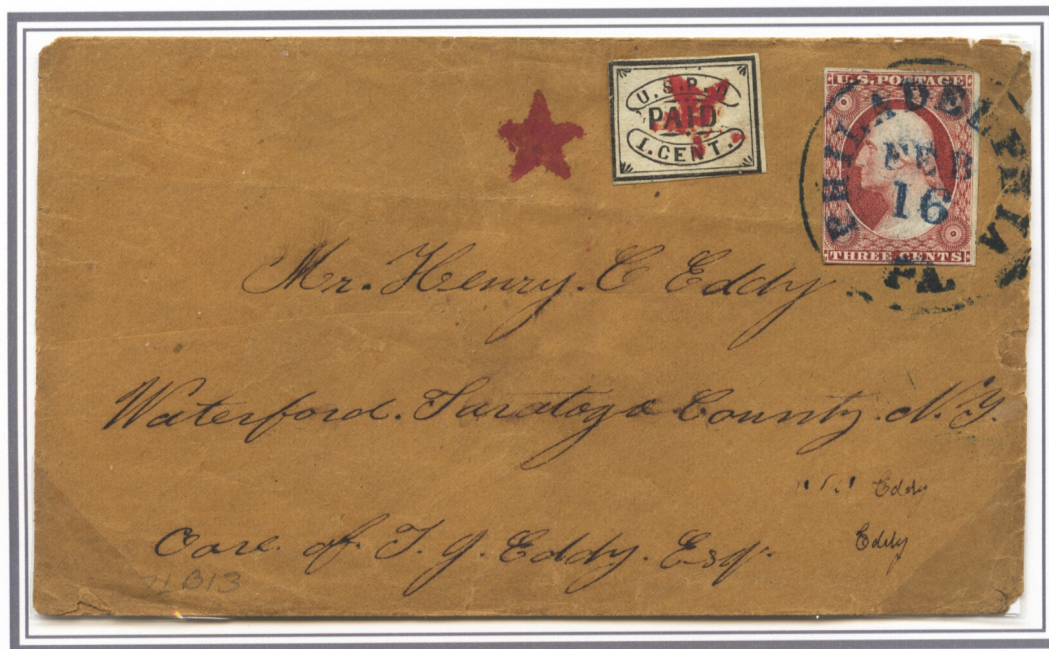 U.S.P.
PAID
1. CENT.
U.S. POSTAGE
THREE CENTS
PHILADELPHIA
FEB
16
PA.
Mr. Henry. C Eddy
Waterford. Saratoga County. N.Y.
Eddy
Care. of. T. G. Eddy. Esqr.
Eddy
7LB13